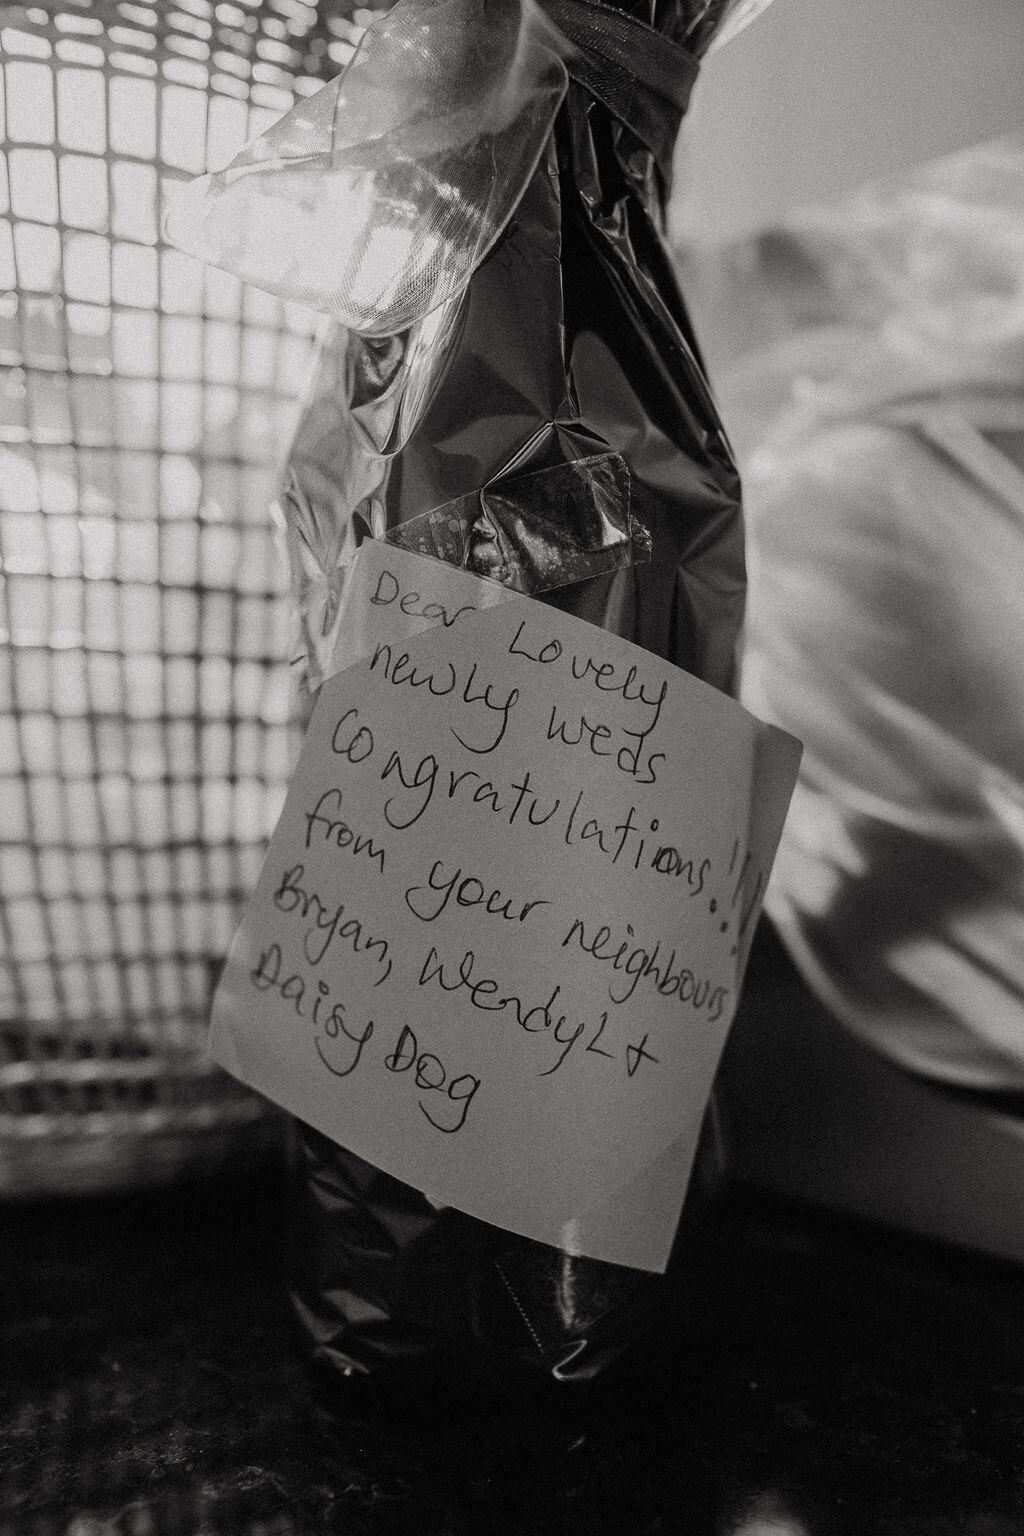 Dear Lovely
newly weds
Congratulations!!!
from your neighbours
Bryan, Wendy &
Daisy Dog